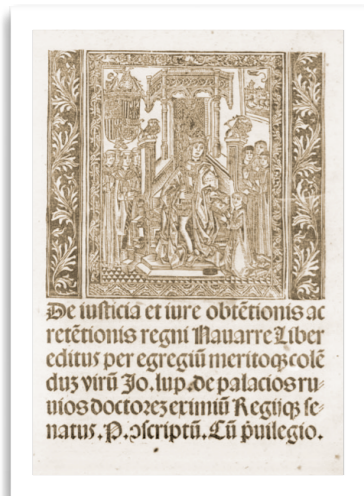 De iusticia et iure obtētionis ac
retētionis regni Nauarre Liber
editus per egregiū meritoqꝫ colē
duꝫ virū Jo. lup. de palacios ru-
uios doctoreꝫ eximiū Regijqꝫ se-
natus. P. ꝯscriptū. Cū p̄uilegio.